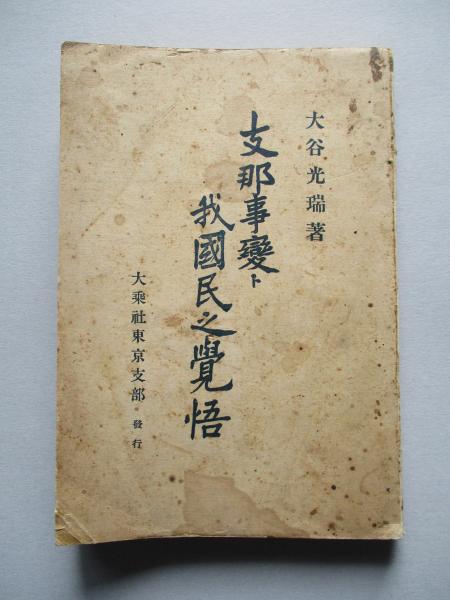 大谷光瑞著
支那事變ト
我國民之覺悟
大乘社東京支部 發行